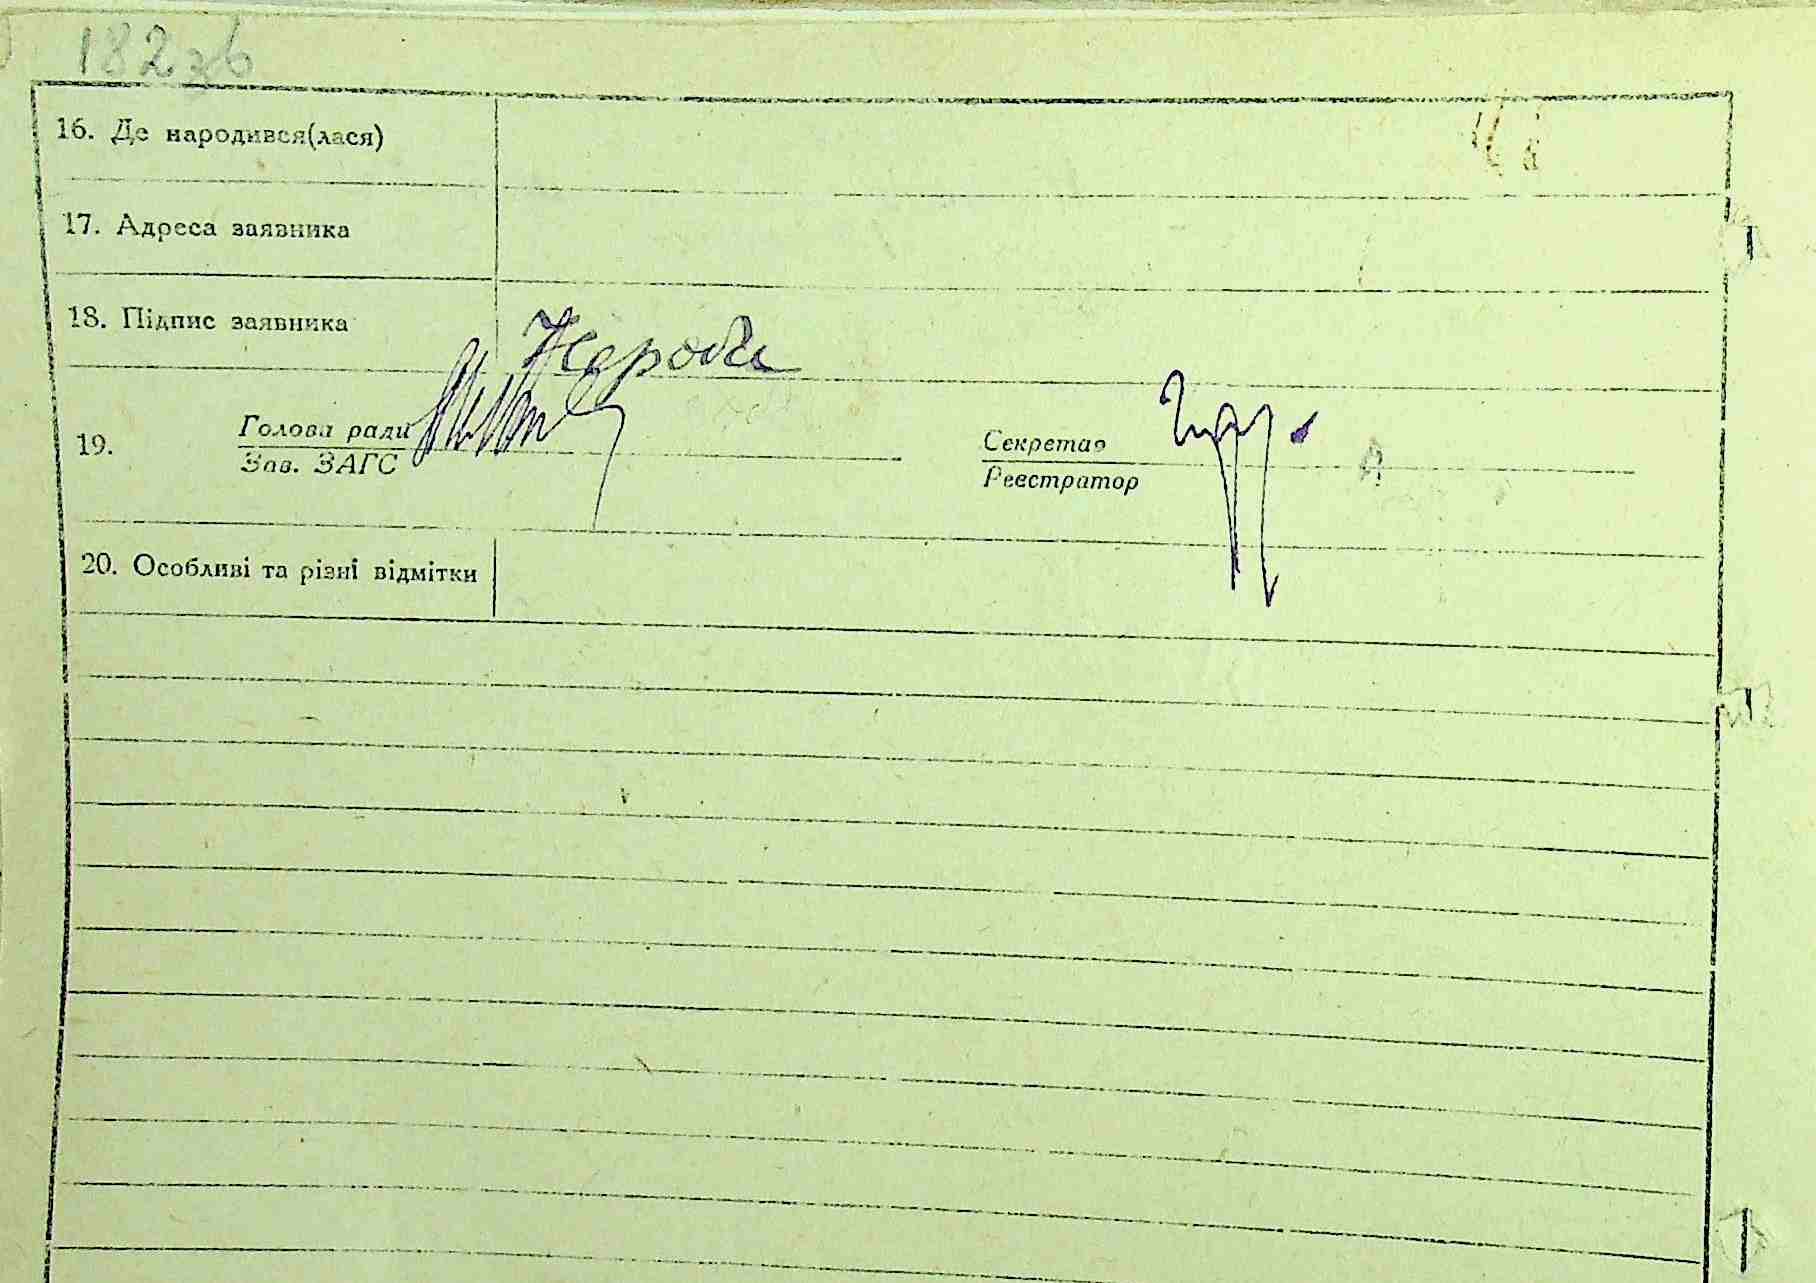 182зв
16. Де народився(лася)
17. Адреса заявника
18. Підпис заявника
19. Голова ради
Зав. ЗАГС
Секретар
Реєстратор
20. Особливі та різні відмітки